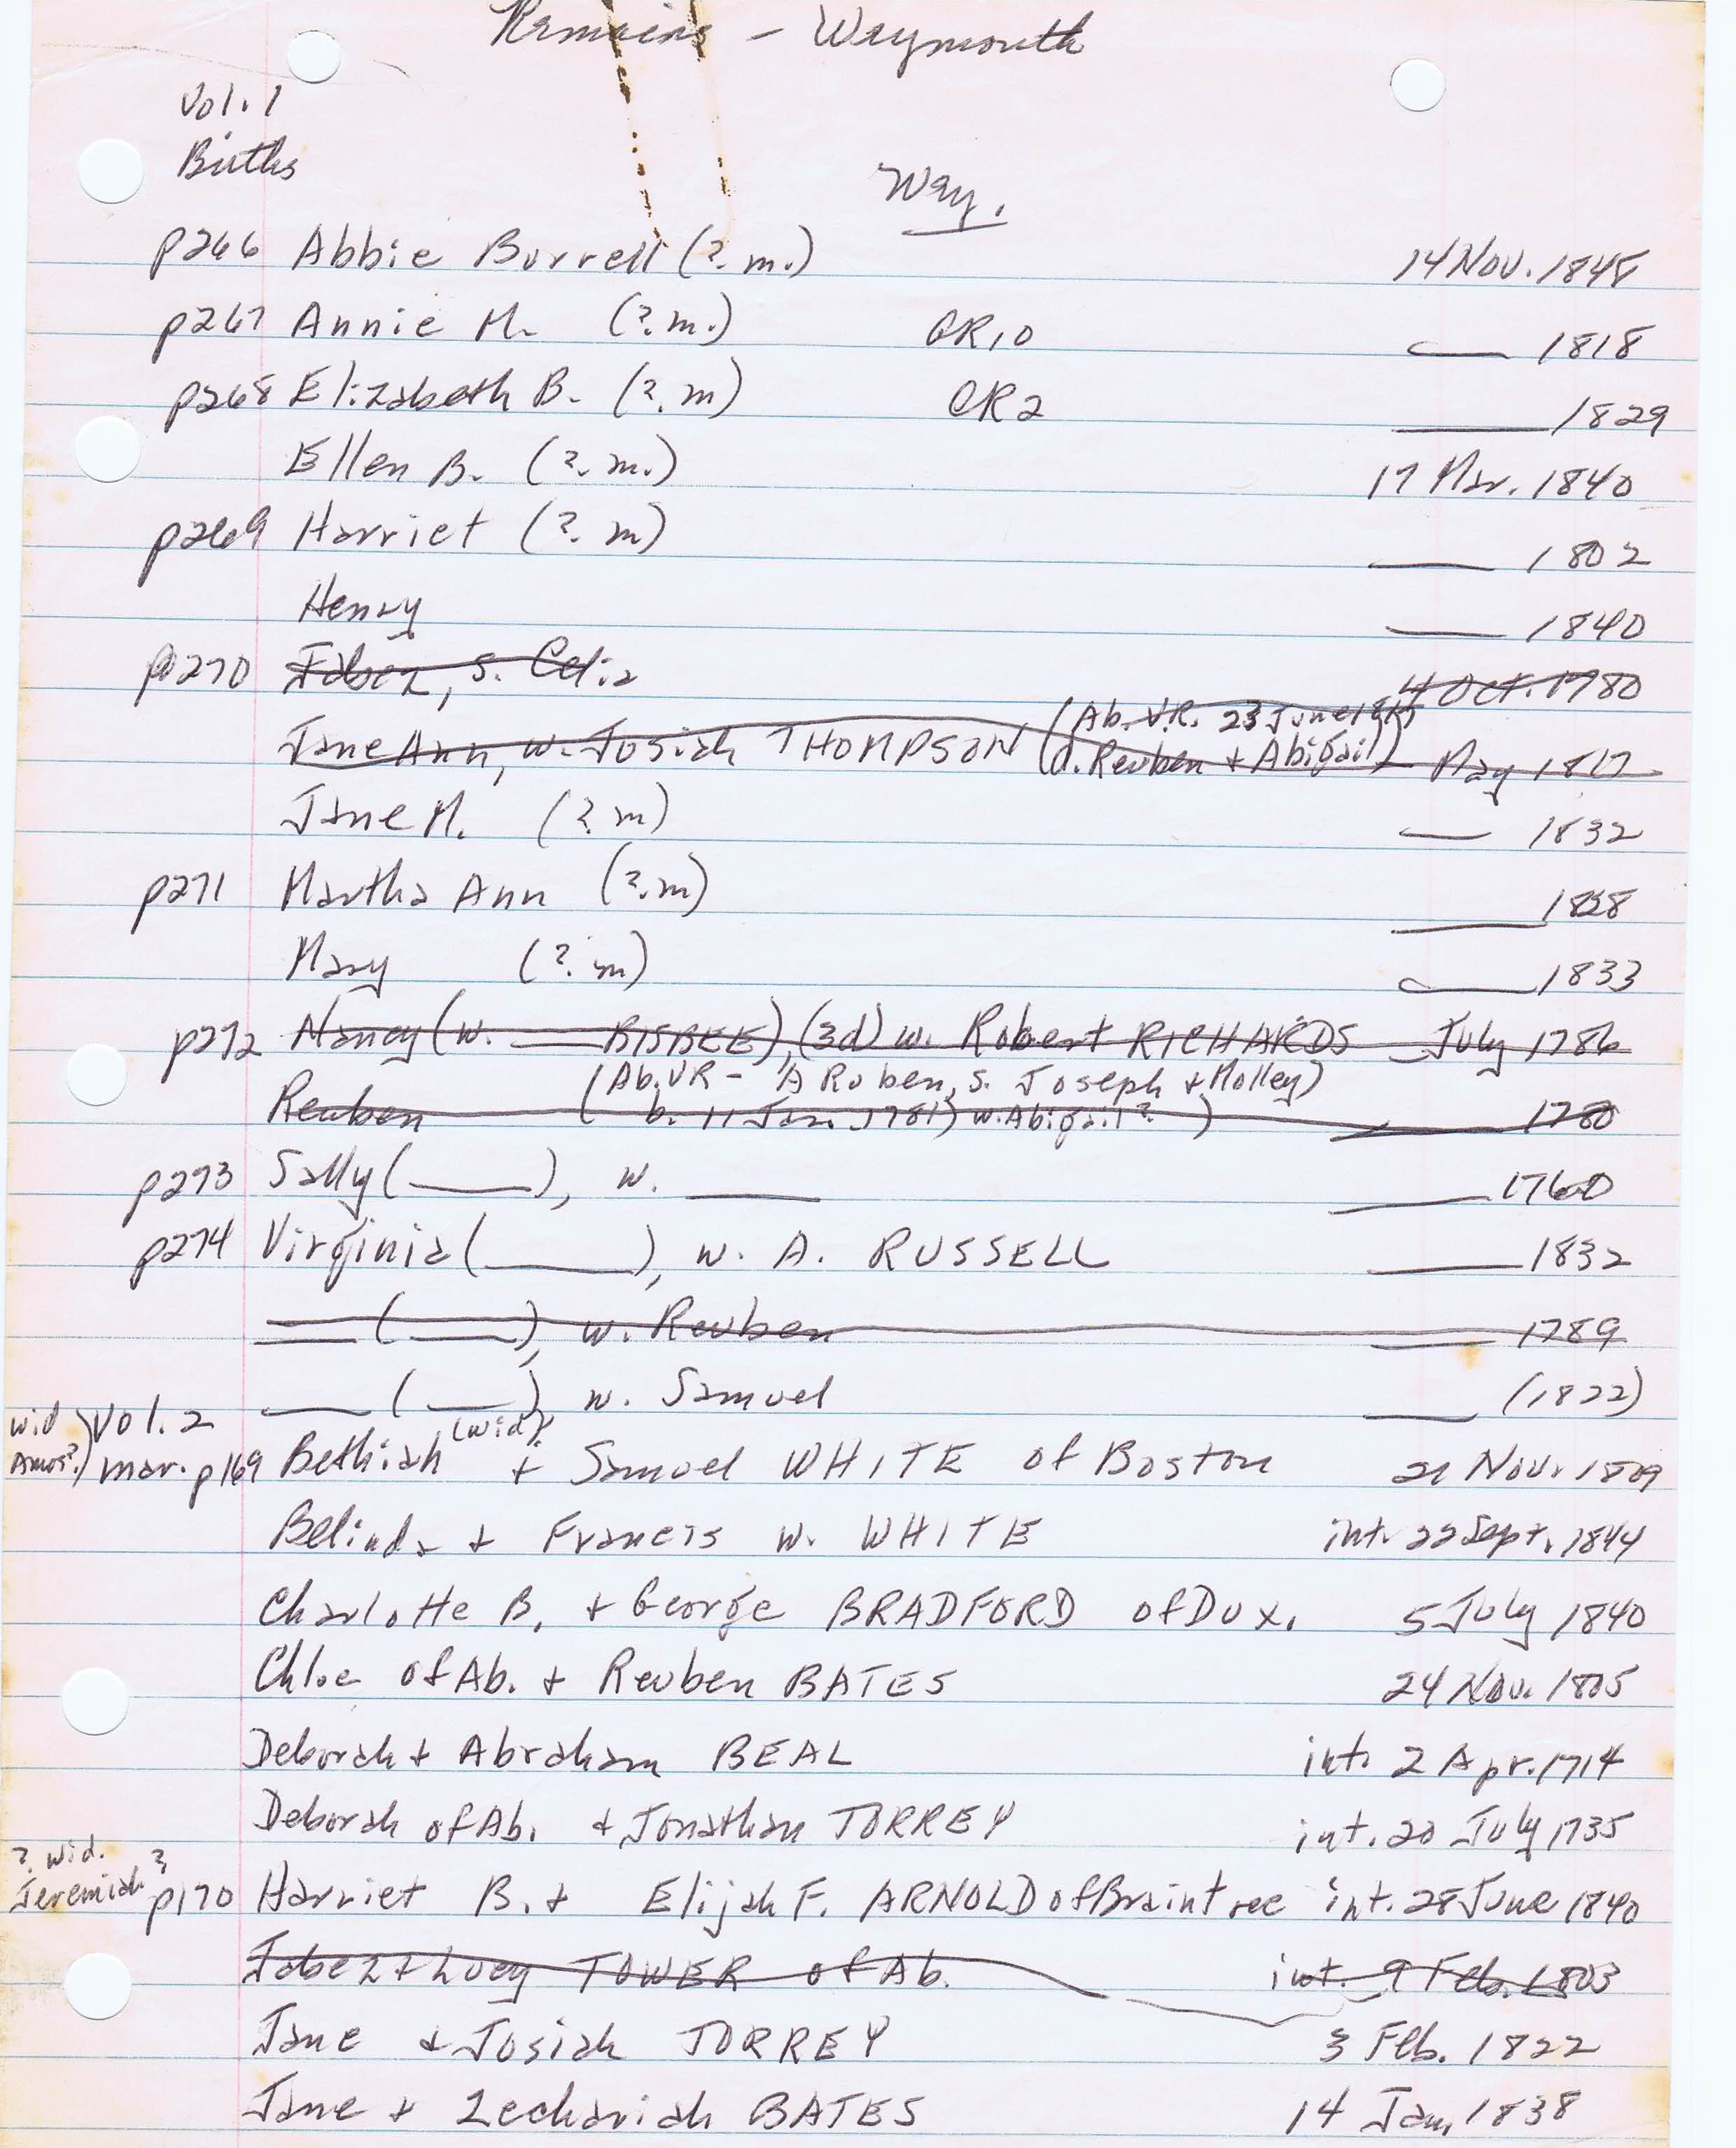 Remains - Weymouth
Vol. 1
Births
Wey.
p266 Abbie Burrell (?. m.) 14 Nov. 1848
p267 Annie M. (?. m.) GR10 — 1818
p268 Elizabeth B. (?. m) GR2 — 1829
Ellen B. (?. m.) 17 Mar. 1840
p269 Harriet (?. m) — 1802
Henry — 1840
p270 Jabez, s. Celia 4 Oct. 1780
(Ab. V.R. 23 June
Jane Ann, w. Josiah THOMPSON (d. Reuben + Abigail) May 1817
Jane M. (? m) — 1832
p271 Martha Ann (?. m) —
Mary (?. m) — 1833
p272 Nancy (w. — BISBEE), (3d) w. Robert RICHARDS — July 1786
(Ab. VR - A Ruben, s. Joseph + Molley)
Reuben b. 11 Jan. 1781) w. Abigail ? ) — 1780
p273 Sally ( — ), w. — — 1760
p274 Virginia ( — ), w. A. RUSSELL — 1832
— ( — ), w. Reuben — 1789
— ( — ) w. Samuel — (1822)
wid Amos?) Vol. 2
mar. p169 Bethiah (wid)? + Samuel WHITE of Boston 21 Nov. 1809
Belinda + Francis W. WHITE int. 22 Sept. 1844
Charlotte B. + George BRADFORD of Dux. 5 July 1840
Chloe of Ab. + Reuben BATES 24 Nov. 1805
Deborah + Abraham BEAL int. 2 Apr. 1714
Deborah of Ab. + Jonathan TORREY int. 20 July 1735
? wid. Jeremiah ?
p170 Harriet B. + Elijah F. ARNOLD of Braintree int. 28 June 1840
Jabez + Lucy TOWER of Ab. int. 9 Feb. 1803
Jane + Josiah TORREY 3 Feb. 1822
Jane + Zechariah BATES 14 Jan, 1838